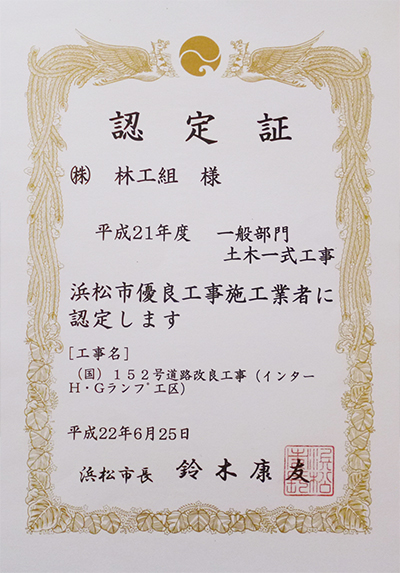 認定証
㈱ 林工組 様
平成21年度 一般部門
土木一式工事
浜松市優良工事施工業者に
認定します
[工事名]
（国）１５２号道路改良工事（インター
Ｈ・Ｇランプ工区）
平成22年6月25日
浜松市長 鈴木康友